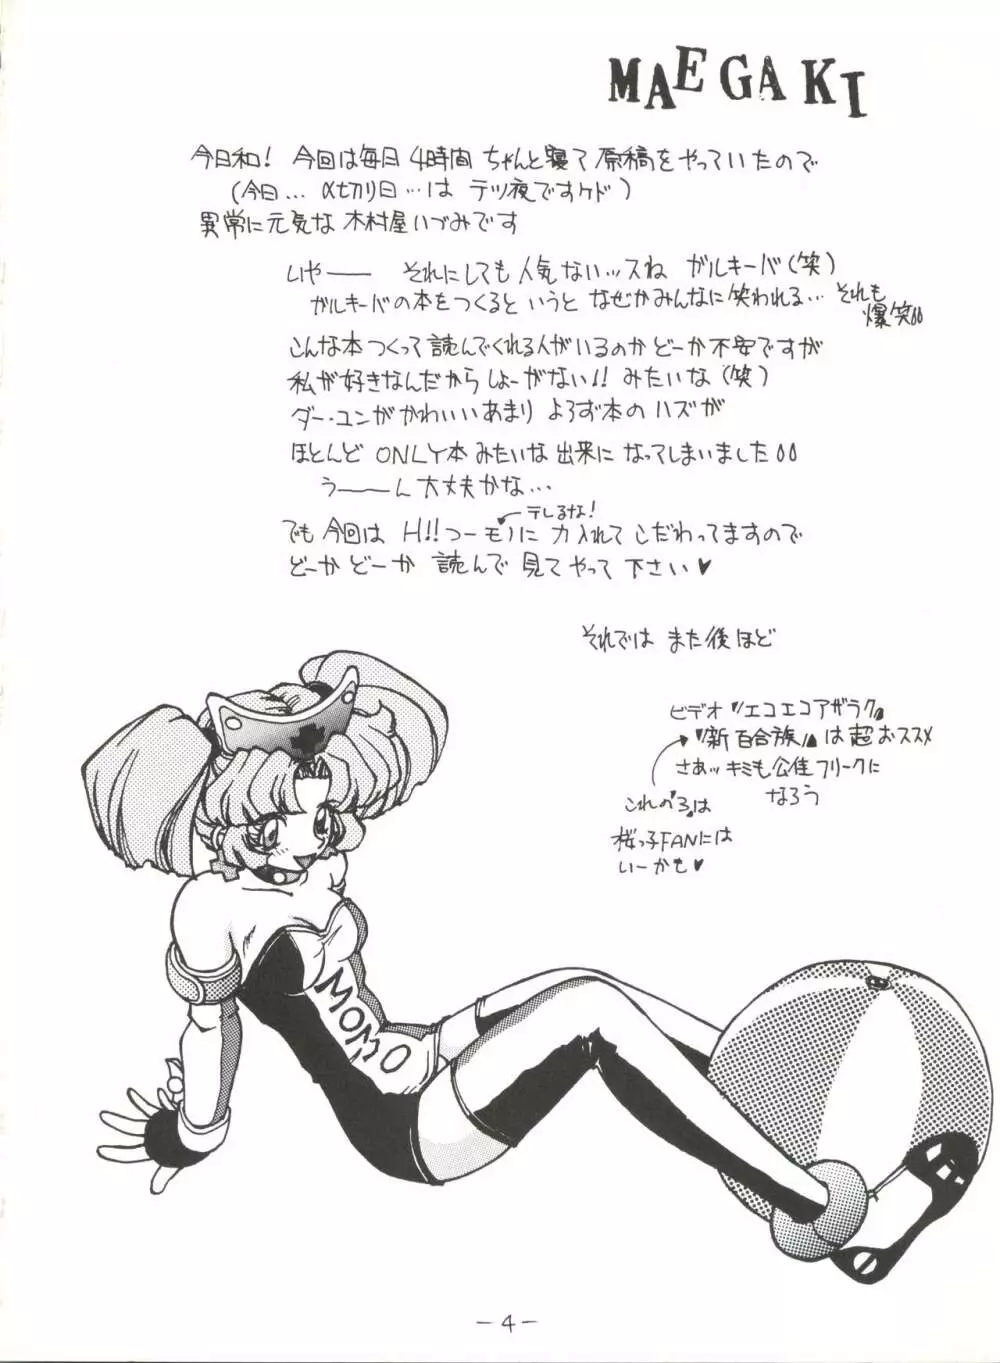 MAEGAKI
今日和! 今回は毎日 4時間 ちゃんと寝て 原稿をやっていたので
(今日… 〆切り日…は テツ夜ですケド)
異常に元気な 木村屋いづみです
いやー それにしても 人気ないッスね ガルキーバ(笑)
ガルキーバの本をつくると いうと なぜかみんなに笑われる… それも
爆笑
こんな本つくって 読んでくれる人がいるのか どーか不安ですが
私が好きなんだから しょーがない!! みたいな(笑)
ダー・ユンがかわいいあまり よろず本のハズが
ほとんど ONLY本みたいな 出来に なってしまいました
うーん大丈夫かな…
テレるな!
でも今回は H!!つーモノに 力入れて こだわってますので
どーかどーか 読んで 見てやって 下さい♥
それでは また後ほど
ビデオ『エコエコアザラク』
『新百合族』は超おススメ
さあッ キミも公佳フリークに
なろう
これの3は
桜っ子FANには
いーかも♥
MOMO
-4-